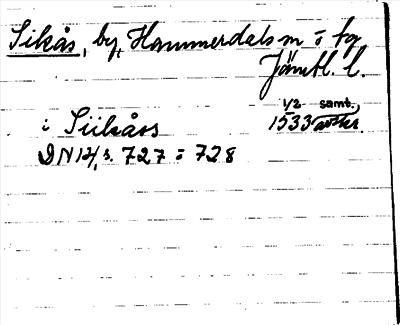 Sikås, by, Hammerdals sn o fg
Jämtl. l.
1/2 samt.
i Siikåss 1533 avskr.
DN 14, s. 727 o 728